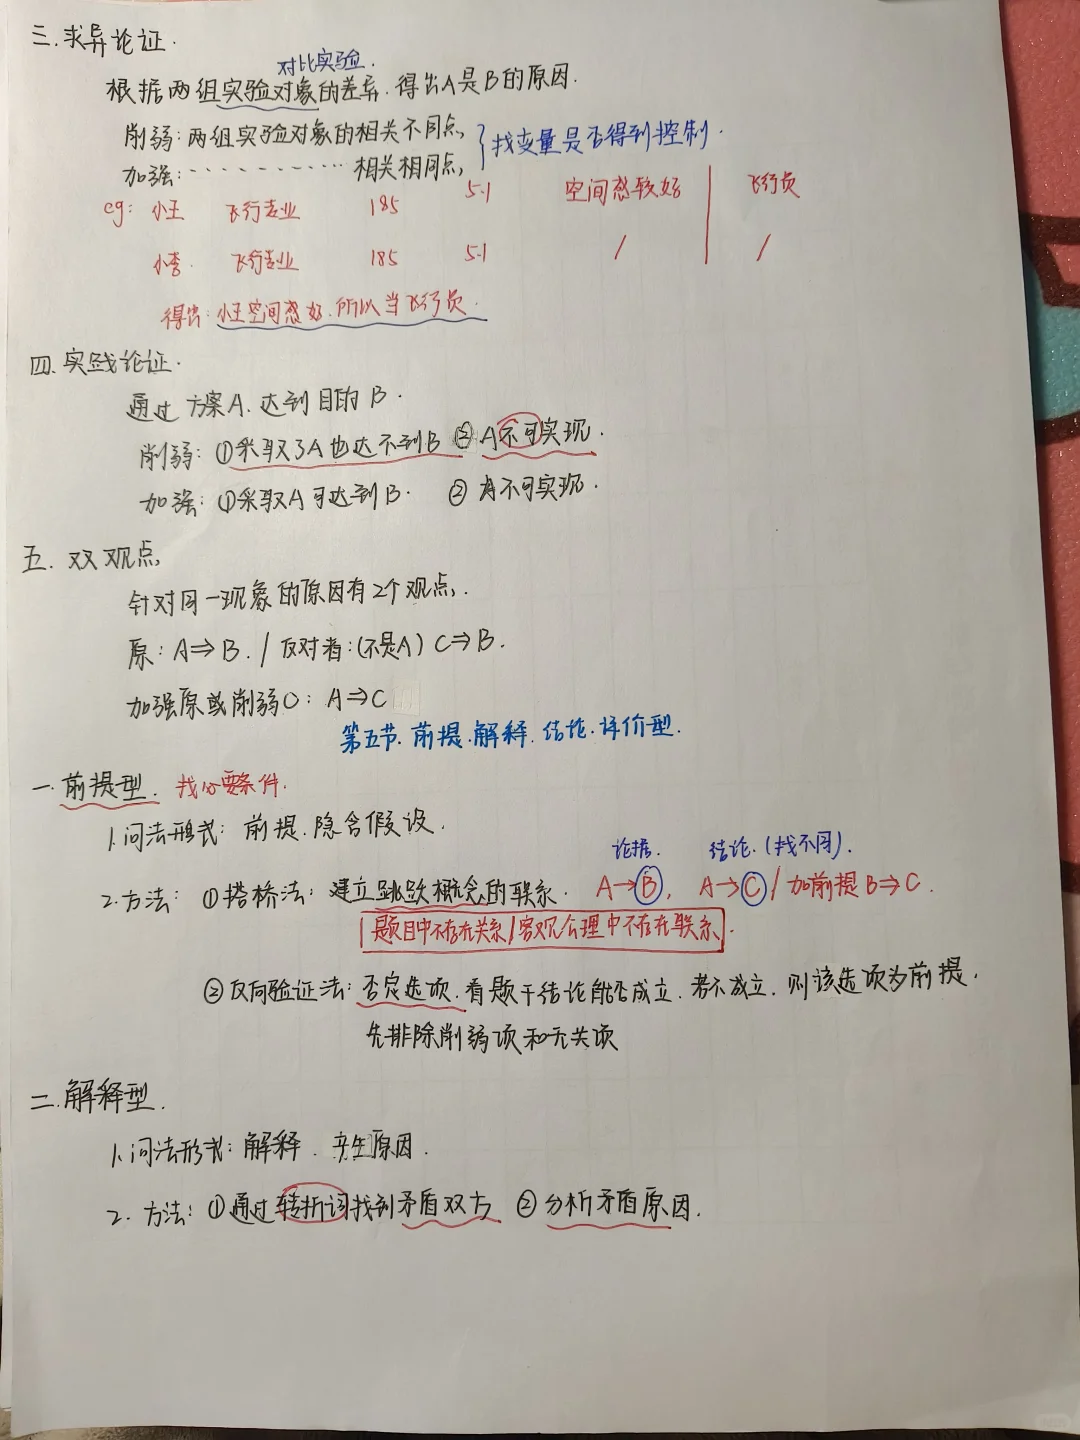 三.求异论证.
对比实验.
根据两组实验对象的差异.得出A是B的原因.
削弱:两组实验对象的相关不同点,
加强:············相关相同点,
}找变量是否得到控制.
eg: 小王 飞行专业 185 5.1 空间感较好 | 飞行员
小李. 飞行专业 185 5.1 / | /
得出:小王空间感好.所以当飞行员.
四.实践论证.
通过方案A.达到目的B.
削弱:①采取了A也达不到B ②A不可实现.
加强:①采取A可达到B. ②不可实现.
五.双观点,
针对同一现象的原因有2个观点,.
原:A⇒B./反对者:(不是A)C⇒B.
加强原或削弱O:A⇒C
第五节.前提.解释.结论.评价型.
一.前提型. 找必要条件.
1.问法形式:前提.隐含假设.
论据. 结论.(找不同).
2.方法:①搭桥法:建立跳跃概念的联系. A→B, A→C/加前提B⇒C.
题目中不存在关系/客观公理中不存在联系.
②反向验证法:否定选项.看题干结论能否成立.若不成立.则该选项为前提.
先排除削弱项和无关项
二.解释型.
1.问法形式:解释.产生原因.
2.方法:①通过转折词找到矛盾双方 ②分析矛盾原因.